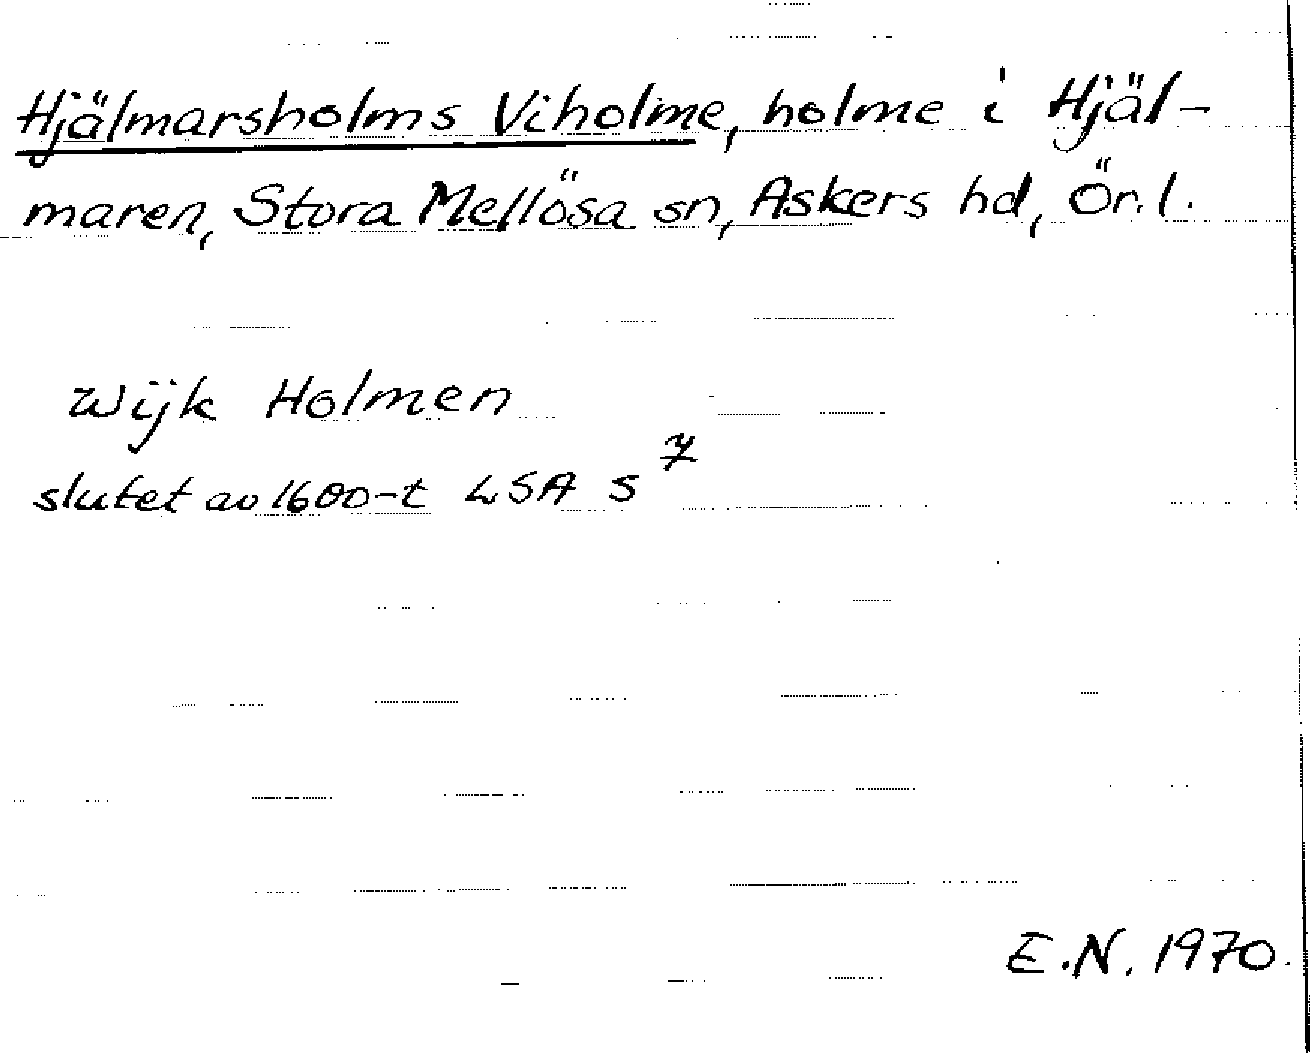 Hjälmarsholms Viholme, holme i Hjäl-
maren, Stora Mellösa sn, Askers hd, Ör.l.
Wijk Holmen
slutet av 1600-t LSA S 7
E.N. 1970.